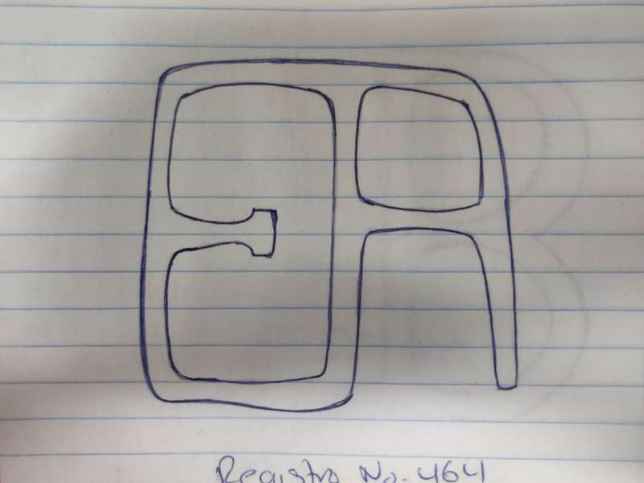 Registro No. 464